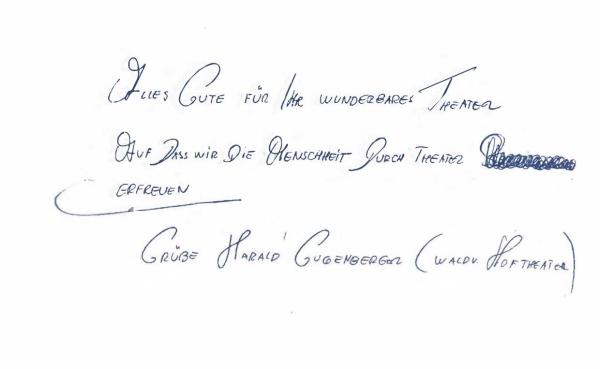 Alles Gute für Ihr wunderbares Theater
Auf dass wir die Menschheit durch Theater
erfreuen
Grüße Harald Gugenberger (Waldv. Hoftheater)